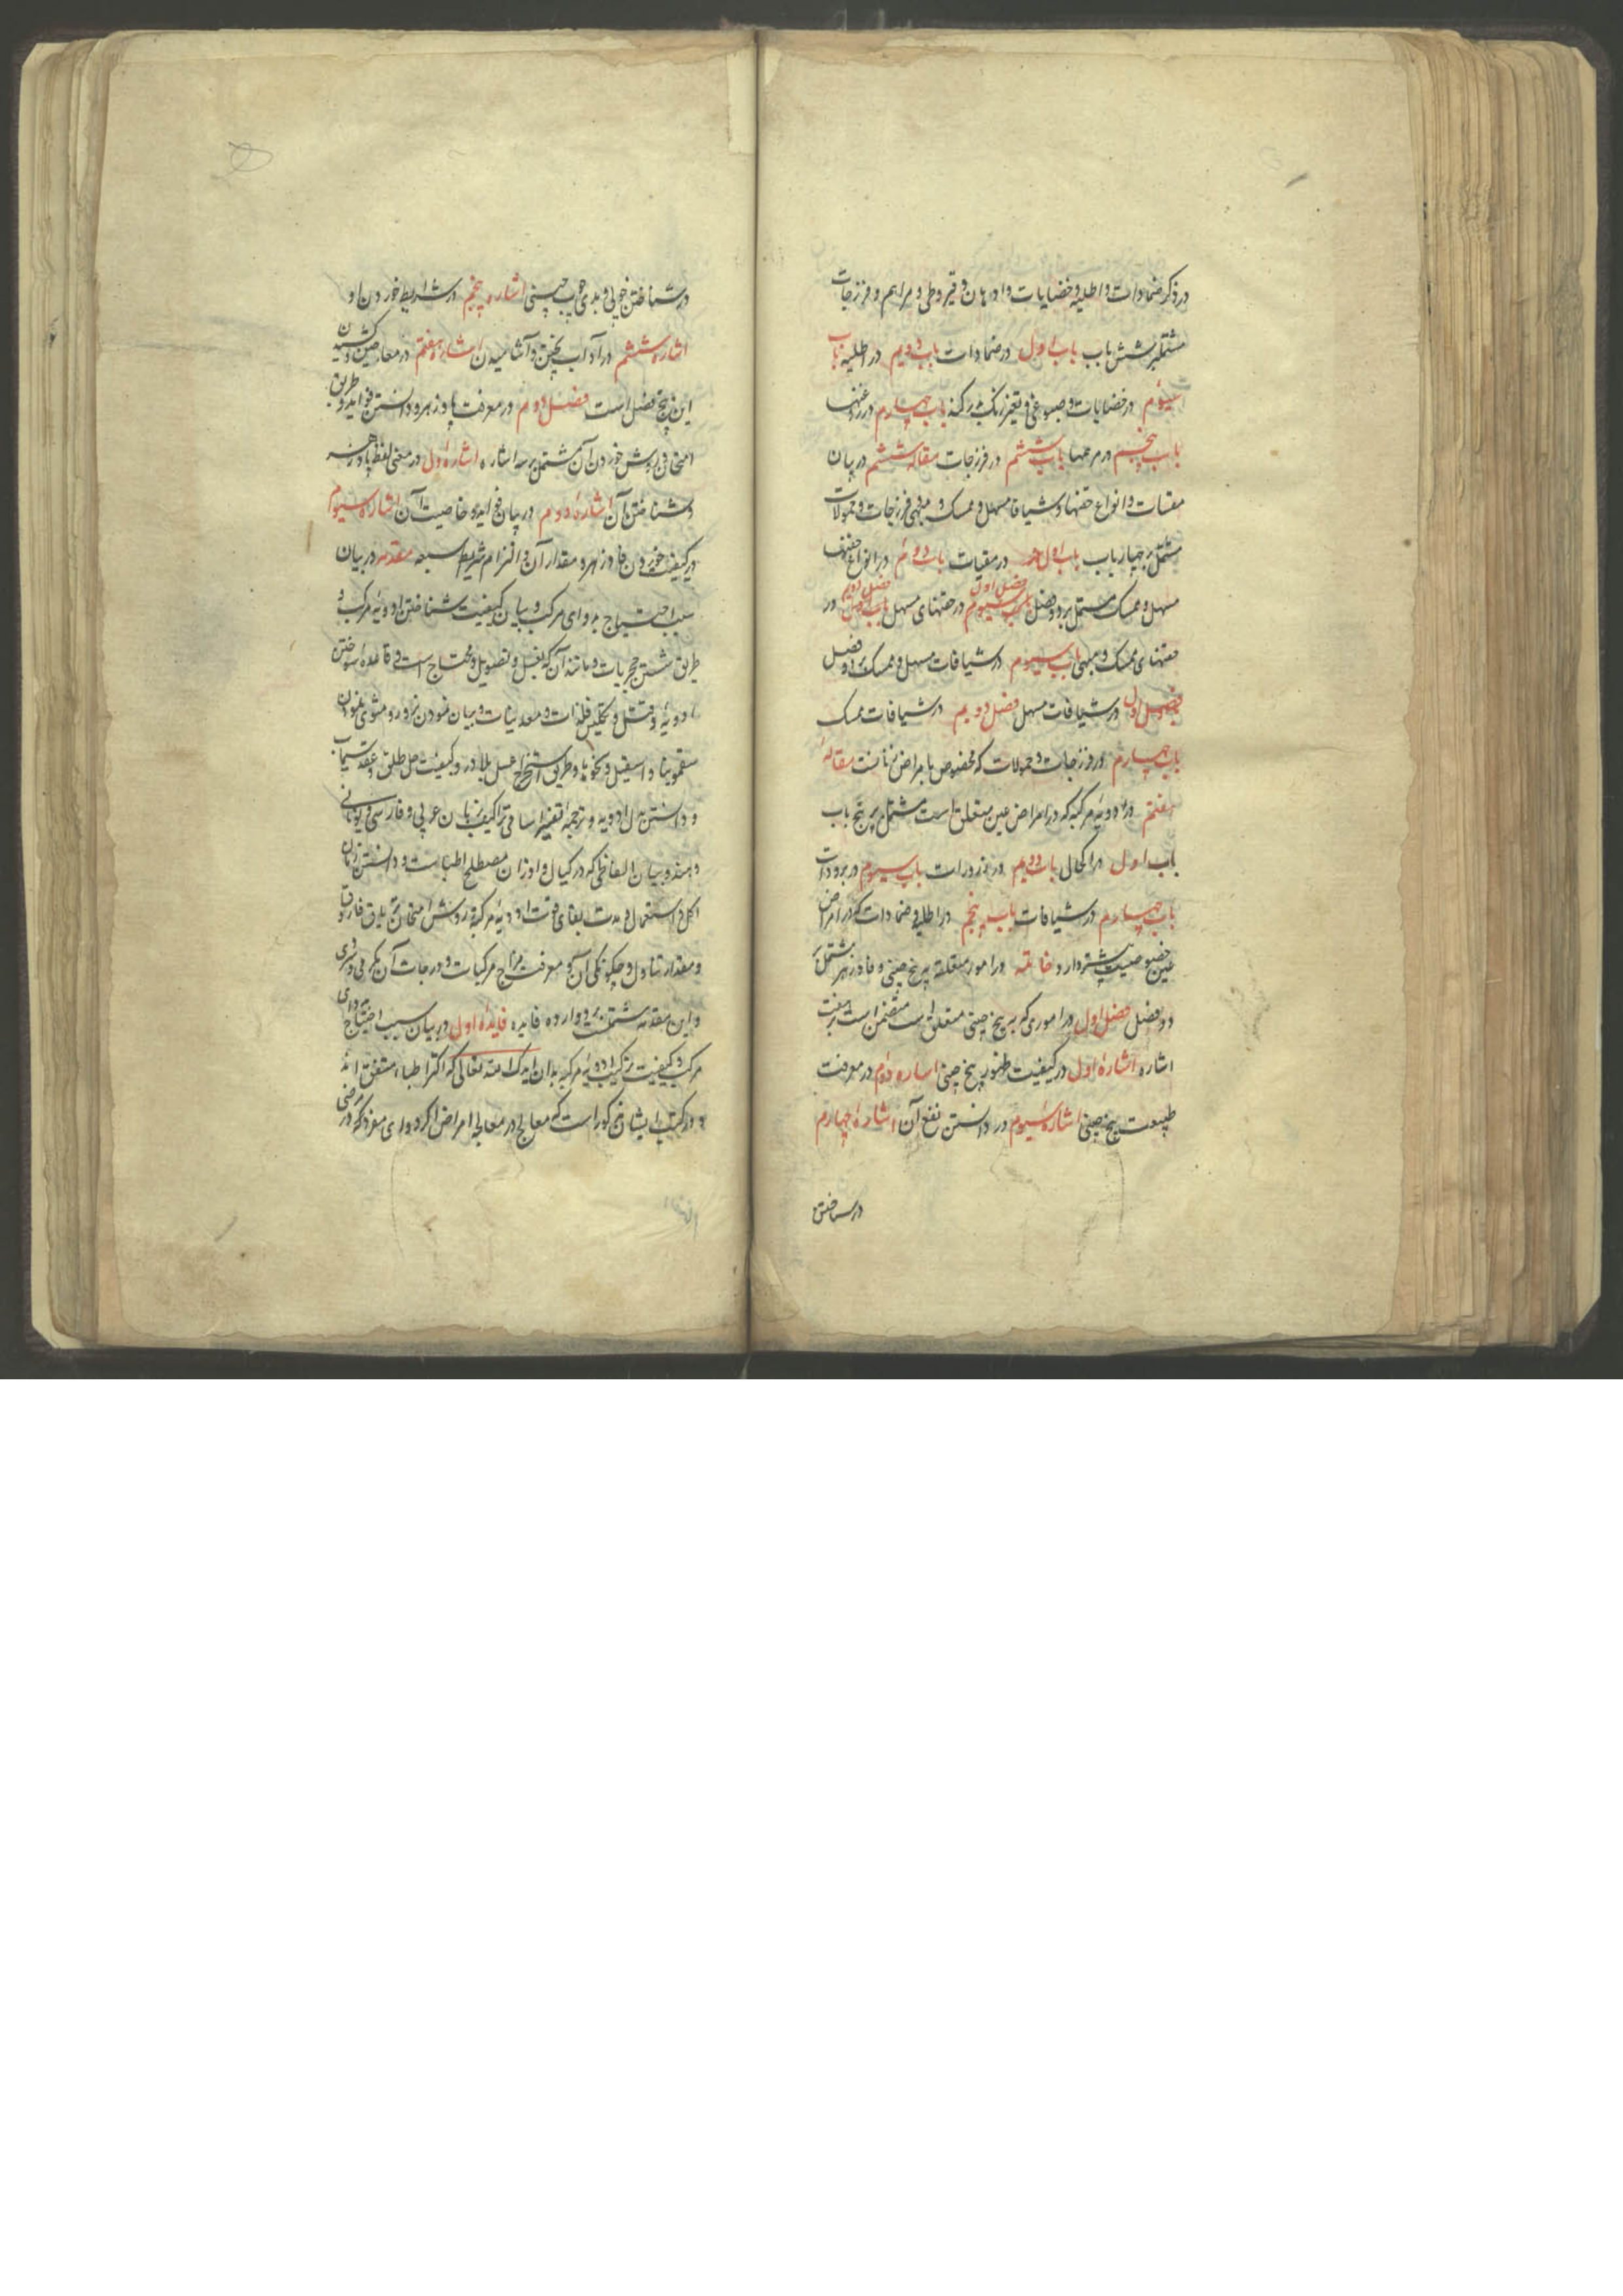 در ذکر ضمادات و اطلیه و خضابات و ادهان و قیروطی و مراهم و فرزجات
مشتمل بر شش باب باب اول در ضمادات باب دویم در اطلیه باب
سیوم در خضابات و صبوغی و تغیر رنک بشره کند باب چهارم در روغنها
باب پنجم در مرهمها باب ششم در فرزجات مقاله ششم در بیان
مقیات و انواع حقنها و شیافات مسهل و ممسک و مبهی و فرزجات و حمولات
مشتمل بر چهار باب باب اول در مقیات باب دوم در انواع حقنهای
مسهل و ممسک مشتمل بر دو فصل فصل اول در حقنهای مسهل فصل دویم در
حقنهای ممسک و مبهی باب سیوم در شیافات مسهل و ممسک بر دو فصل
فصل اول در شیافات مسهل فصل دویم در شیافات ممسک
باب چهارم در فرزجات و حمولات که مخصوص بامراض زنانست مقاله
هفتم در ادویه مرکبه که در امراض عین متعلق است مشتمل بر پنج باب
باب اول در اکحال باب دویم در ذرورات باب سیوم در برودات
باب چهارم در شیافات باب پنجم در اطلیه و ضمادات که در امراض
عین خصوصیت بیشتر دارد و خاتمه در امور متعلقه به بیخ چینی و فادزهر مشتمل بر
دو فصل فصل اول در اموری که به بیخ چینی متعلق است متضمن است بر هفت
اشاره اشارهٔ اول در کیفیت ظهور بیخ چینی اشاره دوم در معرفت
طبیعت بیخ چینی اشاره سیوم در دانستن نفع آن اشارهٔ چهارم
در شناختن
در شناختن خوبی و بدی چوب چینی اشاره پنجم در شرایط خوردن او
اشاره ششم در آداب پختن و آشامیدن اشاره هفتم در معاجین و کشیدن
این پنج فصل است فصل دوم در معرفت پادزهر و دانستن فواید و طریق
امتحان و روش خوردن آن مشتمل بر سه اشاره اشارهٔ اول در معنی لفظ پادزهر
و شناختن آن اشارهٔ دوم در بیان فواید و خاصیت آن اشاره سیوم
در کیفیت خوردن فادزهر و مقدار آن و التزام شرایط سبعه مقدمه در بیان
سبب احتیاج بدوای مرکب و بیان کیفیت شناختن ادویهٔ مرکب و
طریق شستن حجریات و مانند آن که بغسل و تصویل محتاج است و قاعدهٔ سوختن
ادویه و قتل و تکلیس فلزات و معدنیات و بیان نمودن و مشوی نمودن
سقمونیا و اسقیل و نحو آنها و طریق استخراج عسل بلادر و کیفیت حل طلق و عقد سیماب
و دانستن بدل ادویه و ترجمه و تفسیر اسامی تراکیب بزبان عربی و فارسی و یونانی
و هند و بیان الفاظی که در کیال و اوزان مصطلح اطباست و دانستن زمان
اکل و استعمال و مدت بقای قوت ادویهٔ مرکبه و روش امتحان تریاق فاروق
و مقدار تناول و چکونکی آن و معرفت مزاج مرکبات و درجات آن بکرمی و سردی
و این مقدمه مشتملست بر دوازده فایده فایدهٔ اول در بیان سبب احتیاج بدوای
مرکب و کیفیت ترکیب ادویهٔ مرکبه بدان ایدک الله تعالی که اکثر اطباء متفق اند
و در کتب ایشان مذکور است که معالج در معالجه امراض اکر دوای مفرد که در مرضی